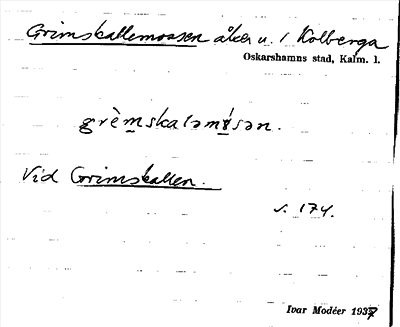 Grimskallemossen åker u. 1 Kolberga
Oskarshamns stad, Kalm. l.
grèmskaləmósən.
Vid Grimskallen.
s. 174.
Ivar Modéer 1937